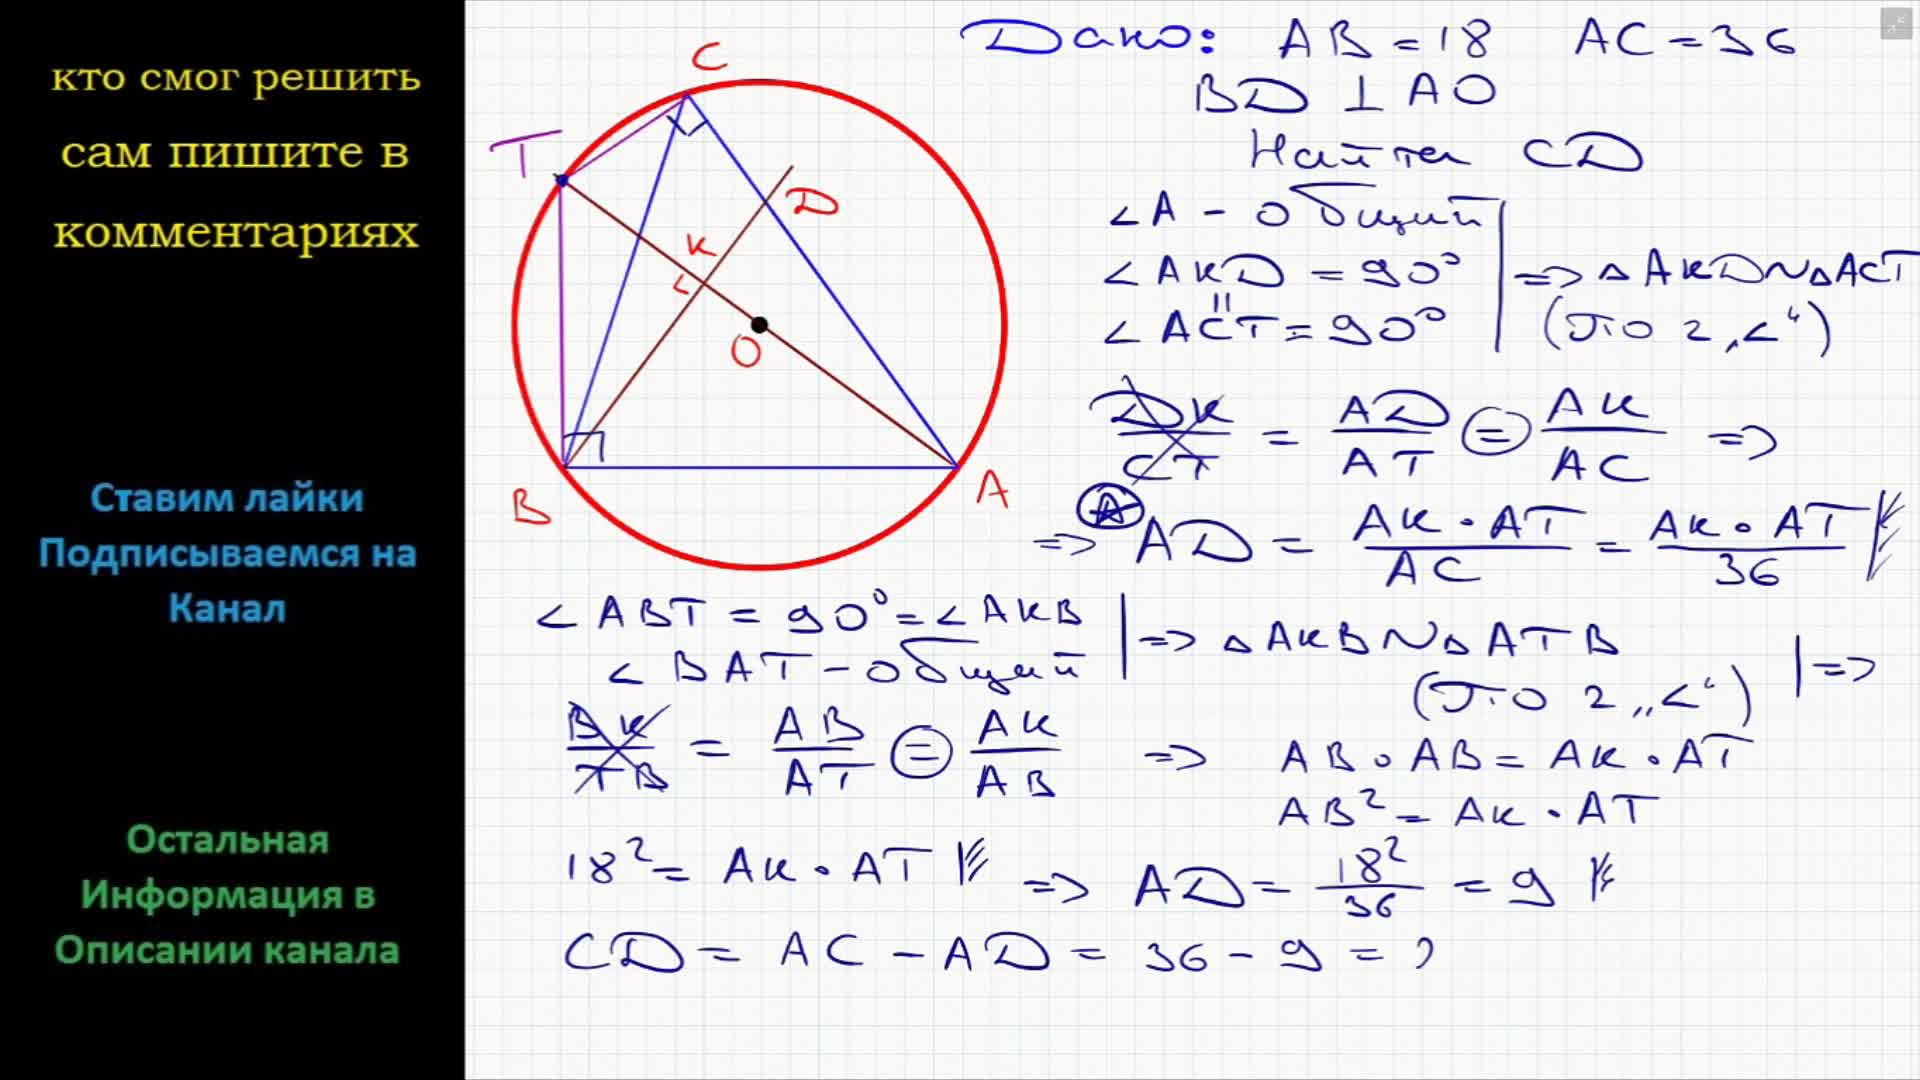 кто смог решить
сам пишите в
комментариях
Ставим лайки
Подписываемся на
Канал
Остальная
Информация в
Описании канала
C
T
D
K
O
B
A
Дано: AB = 18 AC = 36
BD ⊥ AO
Найти CD
∠A - общий
∠AKD = 90° => △AKD ~ △ACT
∠ACT = 90° (по 2 „∠“)
DK/CT = AD/AT = AK/AC =>
=> AD = AK · AT/AC = AK · AT/36
∠ABT = 90° = ∠AKB => △AKB ~ △ATB
∠BAT - общий (по 2 „∠“) =>
BK/TB = AB/AT = AK/AB => AB · AB = AK · AT
AB² = AK · AT
18² = AK · AT => AD = 18²/36 = 9
CD = AC - AD = 36 - 9 =